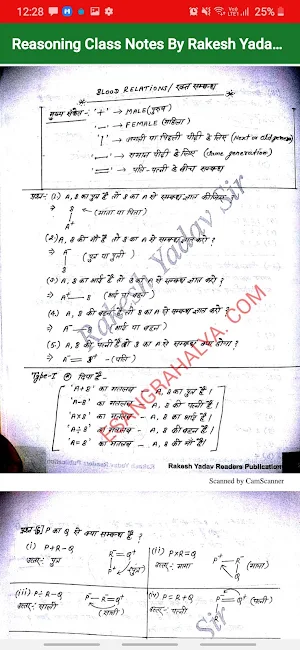 12:28
25%
Reasoning Class Notes By Rakesh Yada...
BLOOD RELATIONS / रक्त सम्बन्ध
मुख्य संकेत:- '+' → MALE (पुरुष)
'-' → FEMALE (महिला)
'|' → अगली या पिछली पीढ़ी के लिए (Next or old generation)
'—' → समान पीढ़ी के लिए (Same generation)
'=' → पति-पत्नी के बीच सम्बन्ध
प्रश्न:- (1) A, B का पुत्र है तो B का A से सम्बन्ध ज्ञात कीजिए
⇒ B (माता या पिता)
A+
(2) A, B की माँ है तो B का A से सम्बन्ध ज्ञात करो ?
⇒ A- (पुत्र या पुत्री)
B
(3) A, B का भाई है तो B का A से सम्बन्ध ज्ञात करो ?
⇒ A+ — B (भाई या बहन)
(4) A, B की बहन है तो B का A से सम्बन्ध ज्ञात करो ?
⇒ A- — B (भाई या बहन)
(5) A, B की पत्नी है तो B का A से सम्बन्ध क्या होगा ?
⇒ A- = B+ - (पति)
Type-I दिया है -
'A+B' का मतलब - A, B का पुत्र है।
'A-B' का मतलब - A, B की पत्नी है।
'A×B' का मतलब - A, B का भाई है।
'A÷B' का मतलब - A, B की बहन है।
'A=B' का मतलब - A, B की माँ है।
Rakesh Yadav Sir
ESHANGRAHALYA.COM
Rakesh Yadav Readers Publication
Scanned by CamScanner
P का Q से क्या सम्बन्ध है ?
(i) P+R-Q R- = Q+ (ii) P×R=Q P+ — R- (मामा)
उत्तर:- पुत्र P+ (पुत्र) उत्तर:- मामा Q
(iii) P÷R-Q P- — R- = Q+ (iv) P=R+Q P- = Q+ (पत्नी)
उत्तर:- साली (साली) उत्तर:- पत्नी R+
Sir